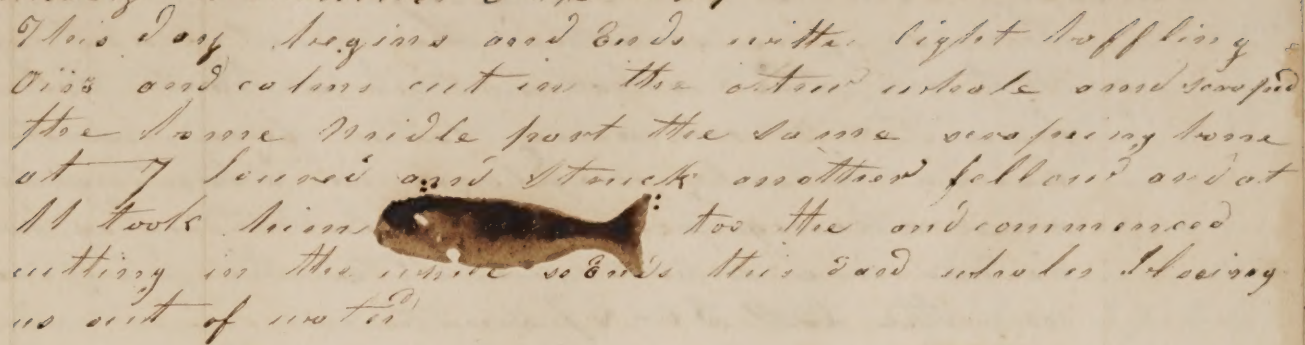 This day begins and Ends with light baffling
airs and calms cut in the other whale and scraped
the bone Midle part the same scraping bone
at 7 loured and struck another fellow and at
11 took him too the and commenced
cutting in the whale so Ends this day whales bloing
us out of water